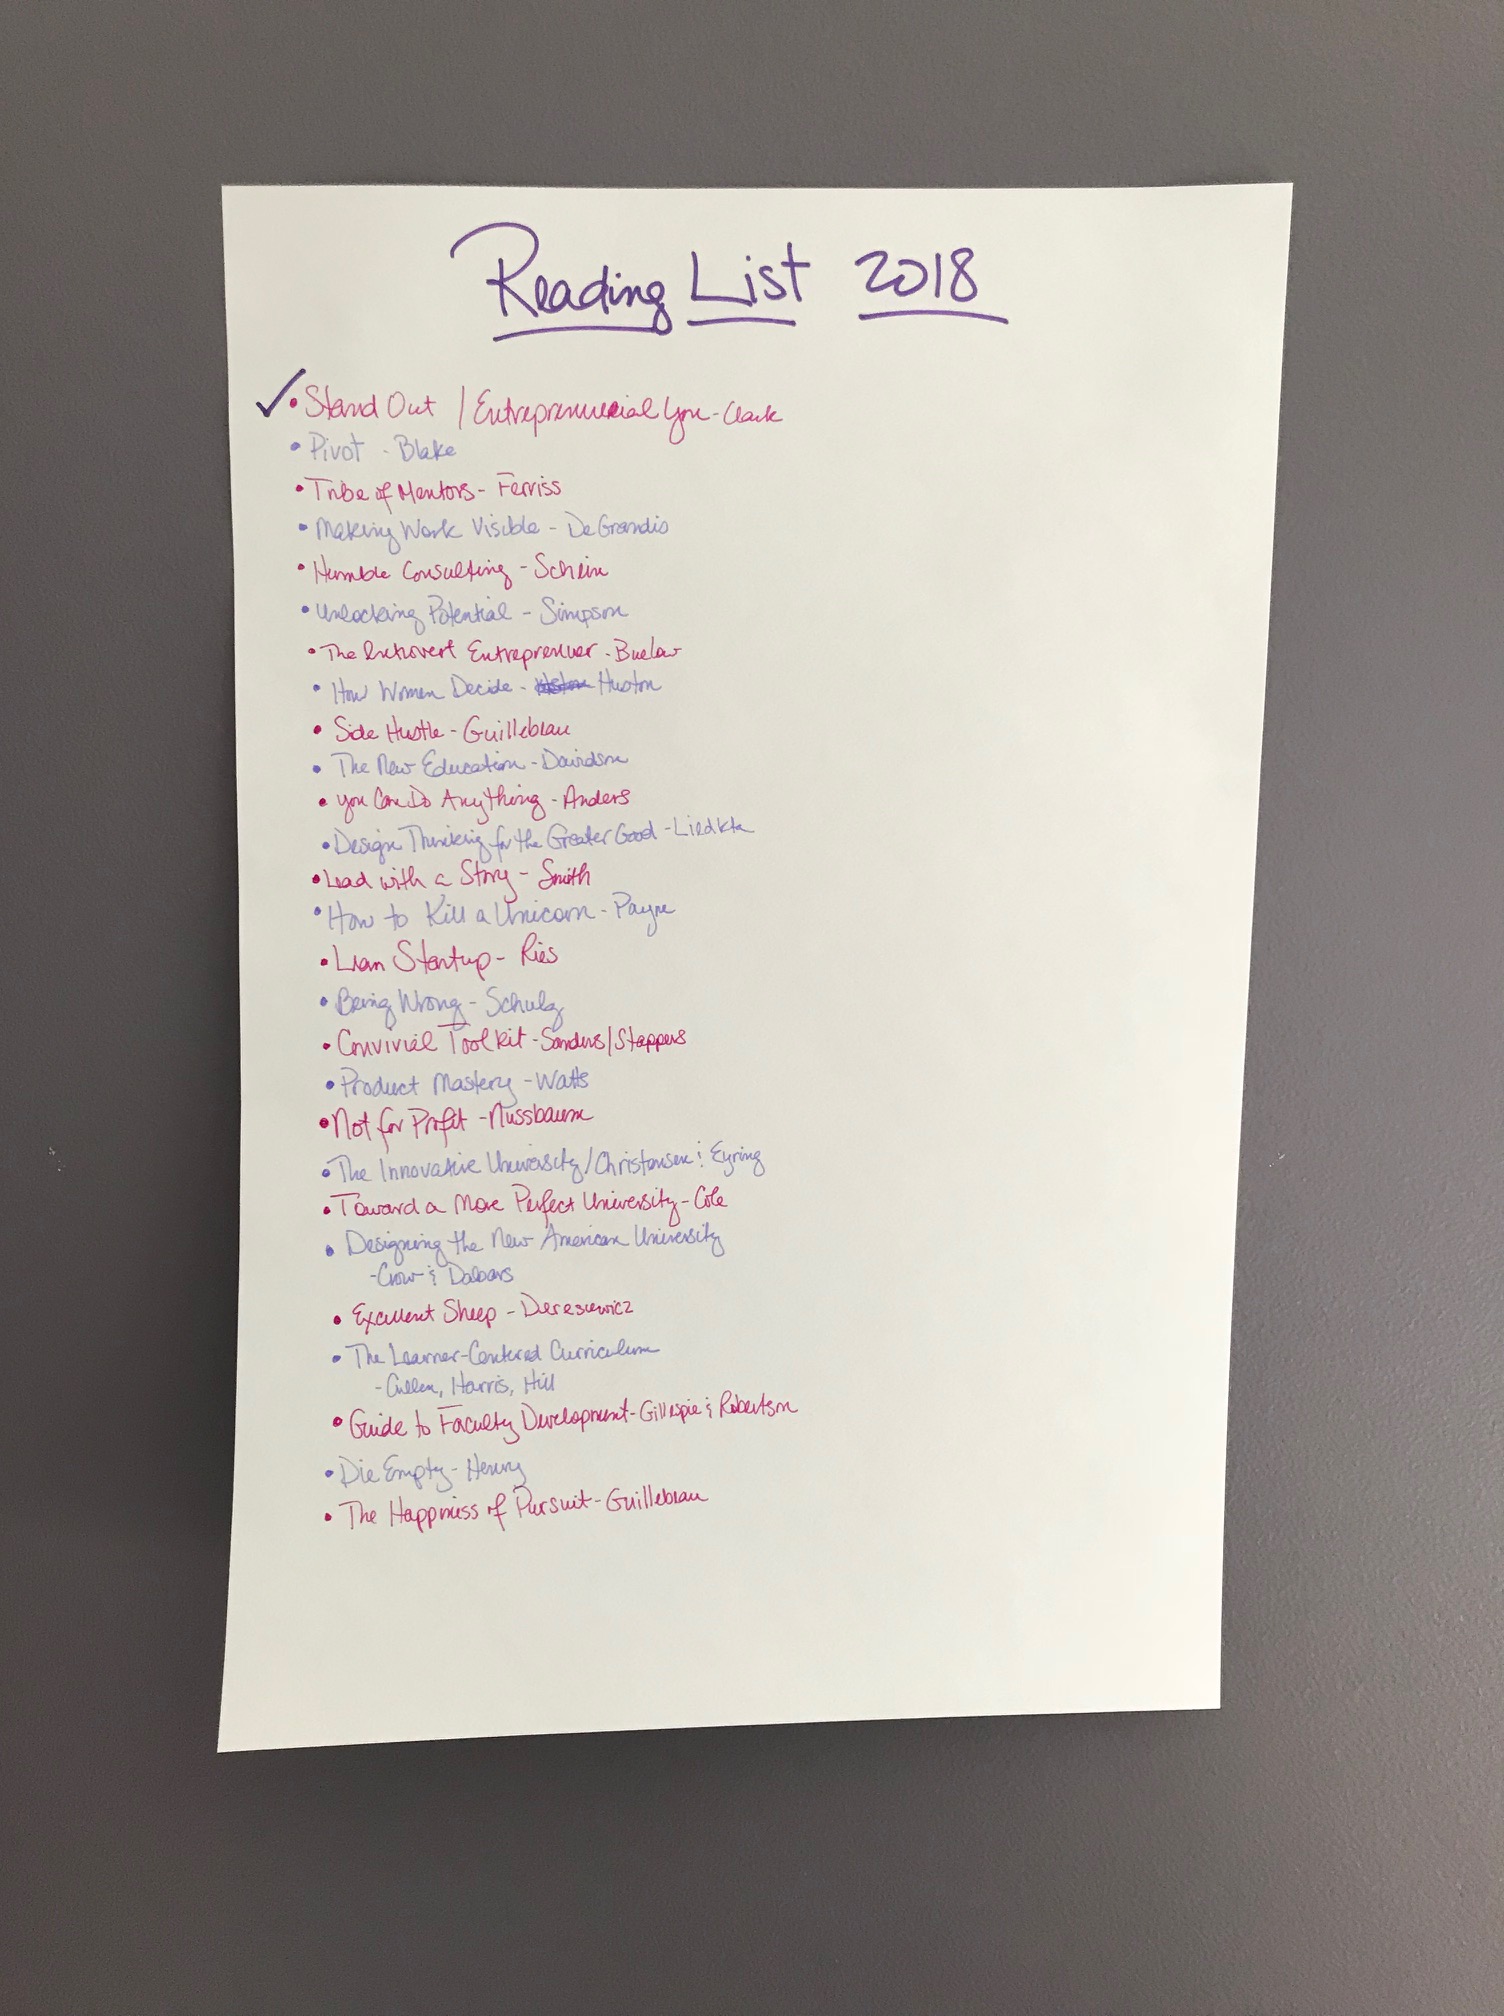 Reading List 2018
✓• Stand Out / Entrepreneurial You - Clark
• Pivot - Blake
• Tribe of Mentors - Ferriss
• Making Work Visible - DeGrandis
• Humble Consulting - Schein
• Unlocking Potential - Simpson
• The Introvert Entrepreneur - Buelow
• How Women Decide - Huston
• Side Hustle - Guillebeau
• The New Education - Davidson
• You Can Do Anything - Anders
• Design Thinking for the Greater Good - Liedkta
• Lead with a Story - Smith
• How to Kill a Unicorn - Payne
• Lean Startup - Ries
• Being Wrong - Schulz
• Convivial Toolkit - Sanders/Stappers
• Product Mastery - Watts
• Not for Profit - Nussbaum
• The Innovative University / Christensen & Eyring
• Toward a More Perfect University - Cole
• Designing the New American University
- Crow & Dabars
• Excellent Sheep - Deresiewicz
• The Learner-Centered Curriculum
- Cullen, Harris, Hill
• Guide to Faculty Development - Gillespie & Robertson
• Die Empty - Henry
• The Happiness of Pursuit - Guillebeau